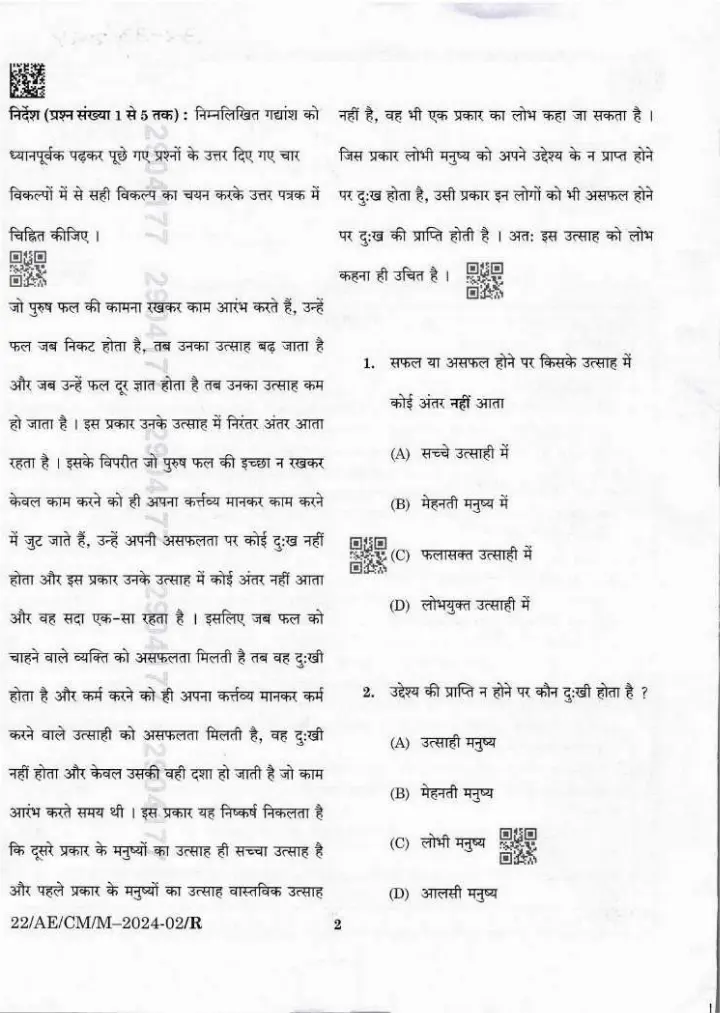 निर्देश (प्रश्न संख्या 1 से 5 तक) : निम्नलिखित गद्यांश को
ध्यानपूर्वक पढ़कर पूछे गए प्रश्नों के उत्तर दिए गए चार
विकल्पों में से सही विकल्प का चयन करके उत्तर पत्रक में
चिह्नित कीजिए ।
जो पुरुष फल की कामना रखकर काम आरंभ करते हैं, उन्हें
फल जब निकट होता है, तब उनका उत्साह बढ़ जाता है
और जब उन्हें फल दूर ज्ञात होता है तब उनका उत्साह कम
हो जाता है । इस प्रकार उनके उत्साह में निरंतर अंतर आता
रहता है । इसके विपरीत जो पुरुष फल की इच्छा न रखकर
केवल काम करने को ही अपना कर्त्तव्य मानकर काम करने
में जुट जाते हैं, उन्हें अपनी असफलता पर कोई दुःख नहीं
होता और इस प्रकार उनके उत्साह में कोई अंतर नहीं आता
और वह सदा एक-सा रहता है । इसलिए जब फल को
चाहने वाले व्यक्ति को असफलता मिलती है तब वह दुःखी
होता है और कर्म करने को ही अपना कर्त्तव्य मानकर कर्म
करने वाले उत्साही को असफलता मिलती है, वह दुःखी
नहीं होता और केवल उसकी वही दशा हो जाती है जो काम
आरंभ करते समय थी । इस प्रकार यह निष्कर्ष निकलता है
कि दूसरे प्रकार के मनुष्यों का उत्साह ही सच्चा उत्साह है
और पहले प्रकार के मनुष्यों का उत्साह वास्तविक उत्साह
नहीं है, वह भी एक प्रकार का लोभ कहा जा सकता है ।
जिस प्रकार लोभी मनुष्य को अपने उद्देश्य के न प्राप्त होने
पर दुःख होता है, उसी प्रकार इन लोगों को भी असफल होने
पर दुःख की प्राप्ति होती है । अतः इस उत्साह को लोभ
कहना ही उचित है ।
1. सफल या असफल होने पर किसके उत्साह में
कोई अंतर नहीं आता
(A) सच्चे उत्साही में
(B) मेहनती मनुष्य में
(C) फलासक्त उत्साही में
(D) लोभयुक्त उत्साही में
2. उद्देश्य की प्राप्ति न होने पर कौन दुःखी होता है ?
(A) उत्साही मनुष्य
(B) मेहनती मनुष्य
(C) लोभी मनुष्य
(D) आलसी मनुष्य
22/AE/CM/M–2024-02/R
2
2904177 2904177 2904177 2904177 2904177